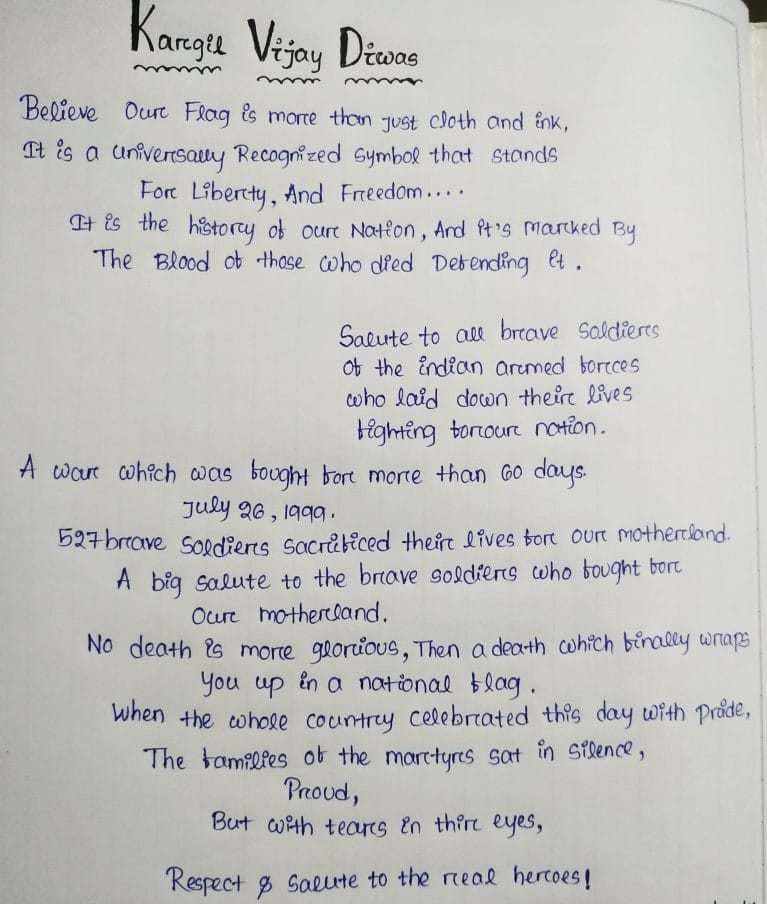 Kargil Vijay Diwas
Believe Our Flag is more than just cloth and ink,
It is a universally Recognized symbol that stands
For Liberty, And Freedom....
It is the history of our Nation, And it's marked By
The Blood of those who died Defending it.
Salute to all brave Soldiers
of the indian armed forces
who laid down their lives
fighting for our nation.
A war which was fought for more than 60 days.
July 26, 1999.
527 brave Soldiers sacrificed their lives for our motherland.
A big salute to the brave soldiers who fought for
Our motherland.
No death is more glorious, Then a death which finally wraps
You up in a national flag.
When the whole country celebrated this day with pride,
The families of the martyrs sat in silence,
Proud,
But with tears in thir eyes,
Respect & salute to the real heroes!